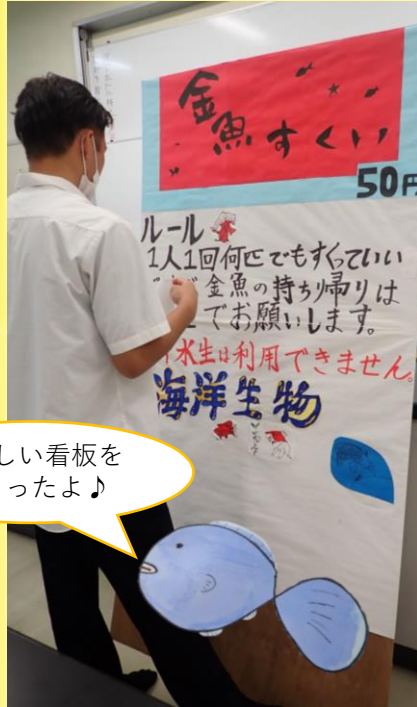 金魚すくい
50円
ルール
1人1回何匹でもすくっていい
金魚の持ち帰りは
でお願いします。
水生は利用できません。
海洋生物
しい看板を
ったよ♪